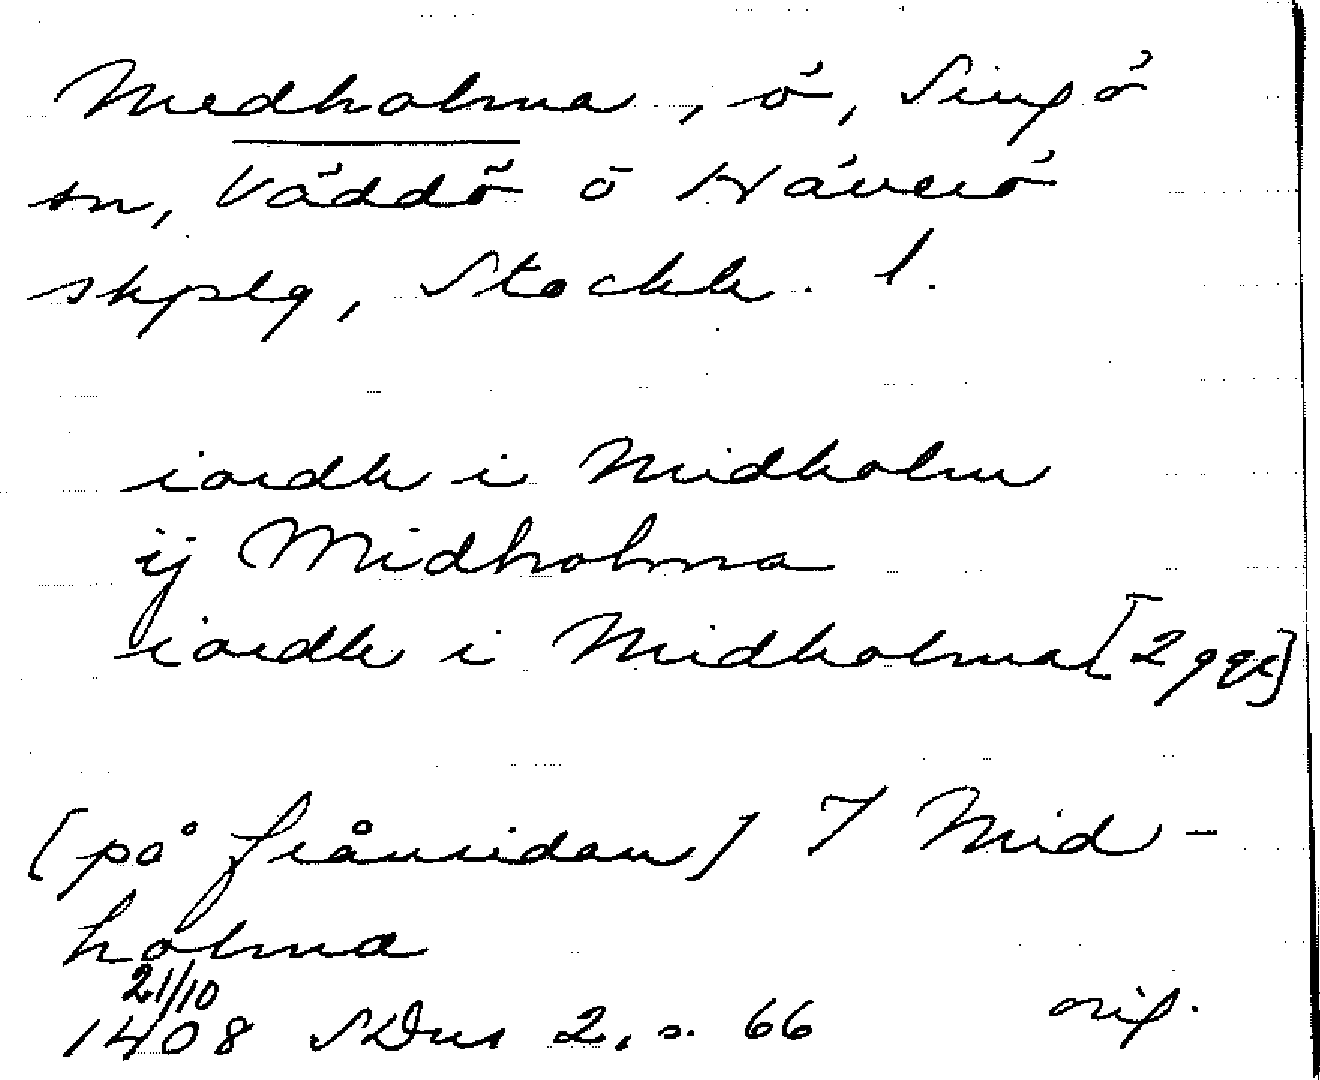 Medholma, ö, Singö
sn, Väddö o Häverö
skplg, Stockh. l.
iordh i Midholm
ij Midholma
iordh i Midholma [2 ggr]
[på frånsidan] J Mid-
holma
21/10
1408 SDns 2, s. 66 orig.